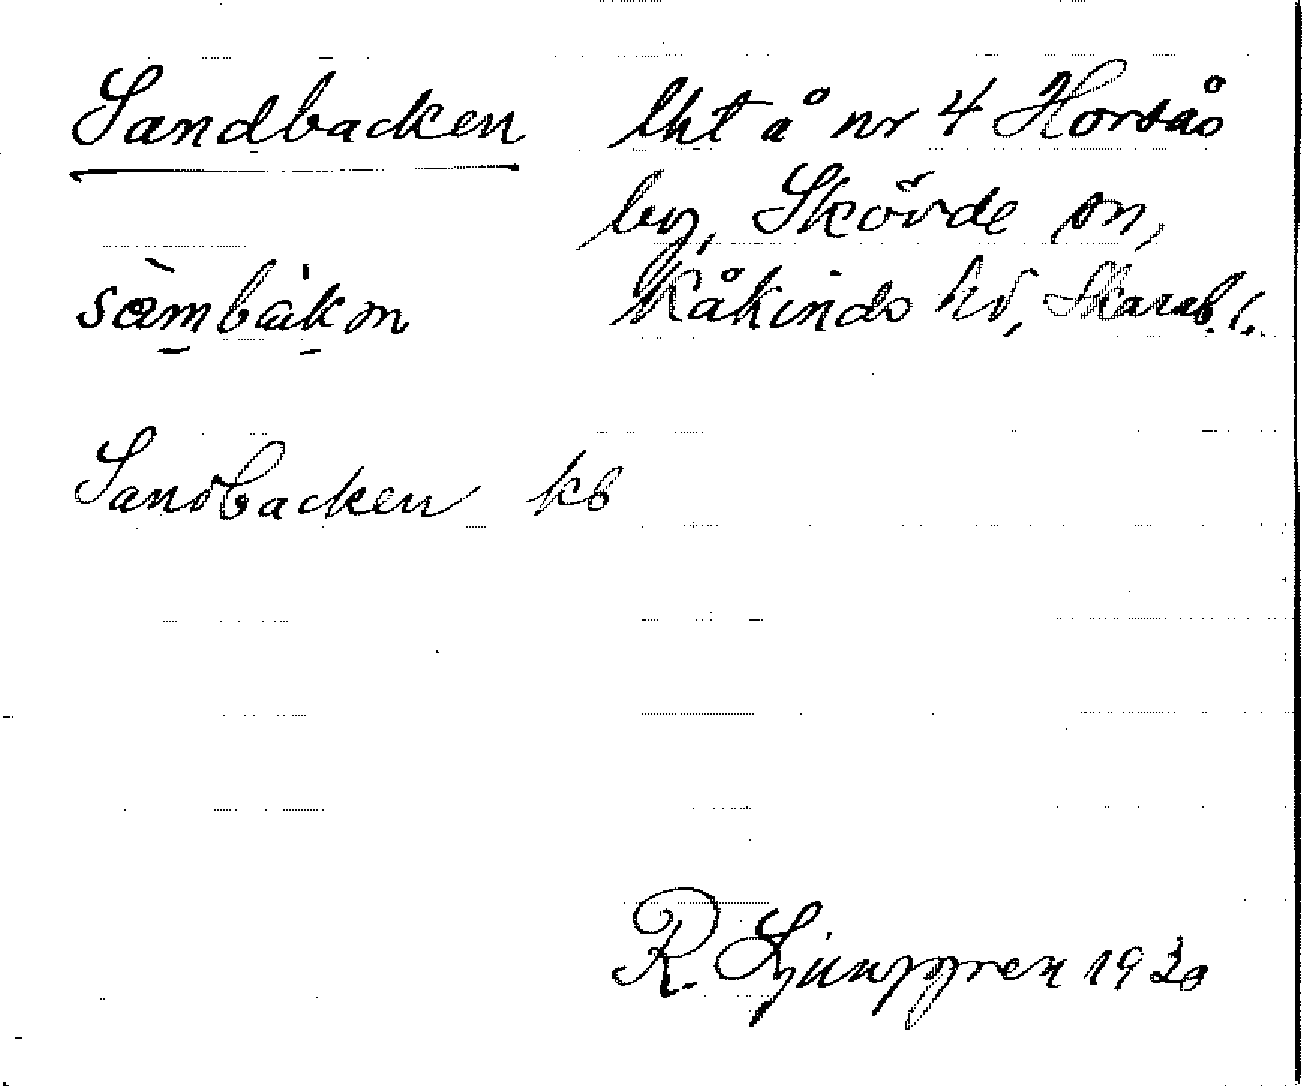 Sandbacken lht å nr 4 Horsås
by, Skövde sn,
sàmbàkən Kåkinds hd, Skarab. l.
Sandbacken kb
R. Ljunggren 1920